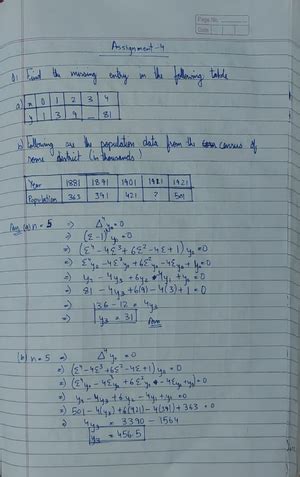 Page No.
Date
Assignment-4
Q1 Find the missing entry in the following table
a) x 0 1 2 3 4
y 1 3 9 — 81
b) Following are the population data from the census of
some district (in thousands)
Year 1881 1891 1901 1911 1921
Population 363 391 421 ? 501
Ans (a) n = 5 ⇒ Δ⁴y₀ = 0
⇒ (Σ-1)⁴y₀ = 0
⇒ (Σ⁴ - 4Σ³ + 6Σ² - 4Σ + 1) y₀ = 0
⇒ Σ⁴y₀ - 4Σ³y₀ + 6Σ²y₀ - 4Σy₀ + y₀ = 0
⇒ y₄ - 4y₃ + 6y₂ - 4y₁ + y₀ = 0
⇒ 81 - 4y₃ + 6(9) - 4(3) + 1 = 0
⇒ 136 - 12 = 4y₃
⇒ y₃ = 31
(b) n = 5 ⇒ Δ⁴y₀ = 0
⇒ (Σ⁴ - 4Σ³ + 6Σ² - 4Σ + 1) y₀ = 0
⇒ (Σ⁴y₀ - 4Σ³y₀ + 6Σ²y₀ - 4Σy₀ + y₀) = 0
⇒ y₄ - 4y₃ + 6y₂ - 4y₁ + y₀ = 0
⇒ 501 - 4(y₃) + 6(421) - 4(391) + 363 = 0
⇒ 4y₃ = 3390 - 1564
⇒ y₃ = 456.5